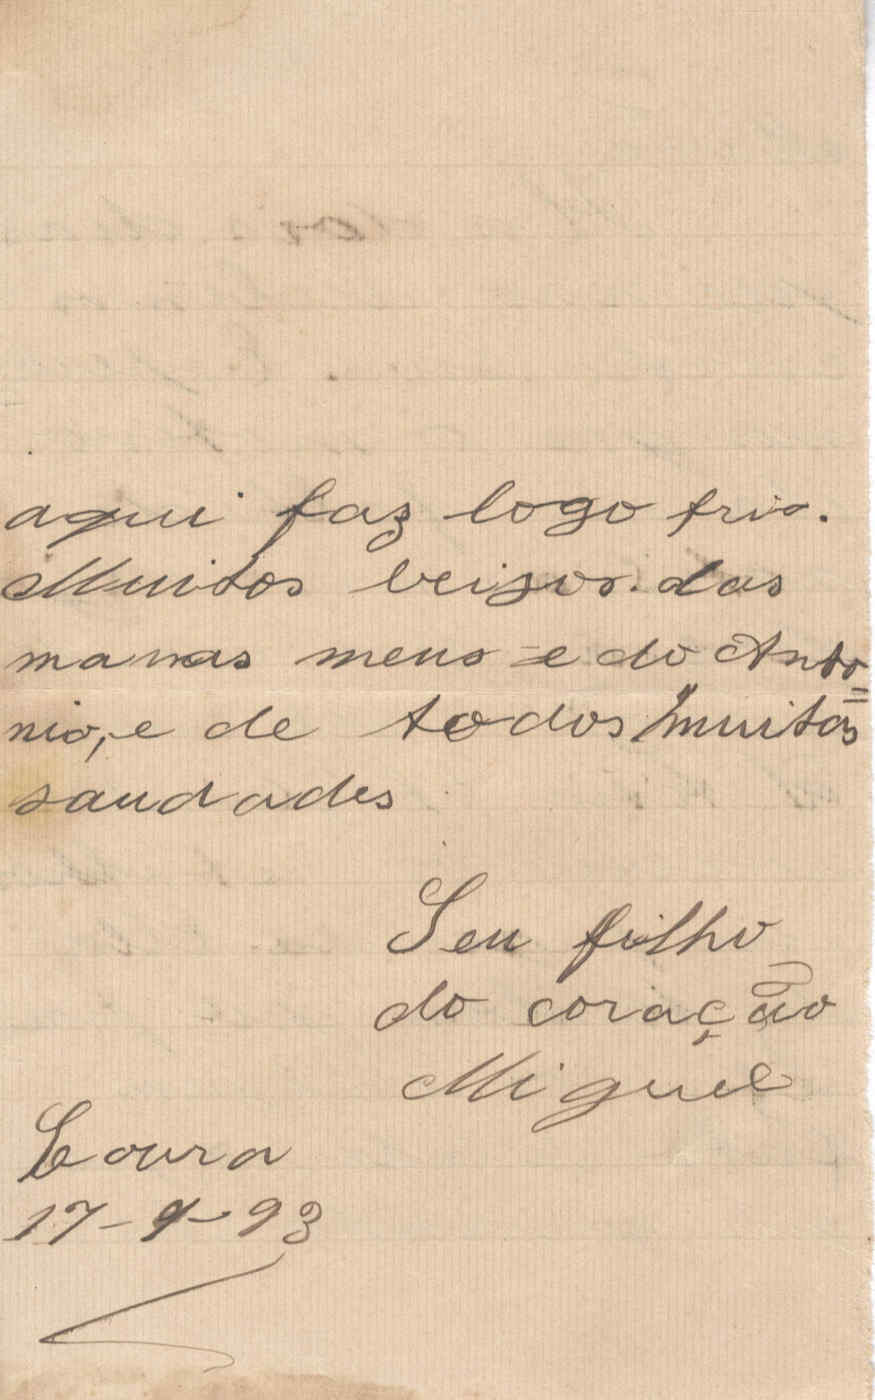 aqui faz logo frio.
Muitos beijos. das
manas meus e do Anto=
nio, e de todos muitas
saudades
Seu filho
do coração
Miguel
Coura
17-9-93